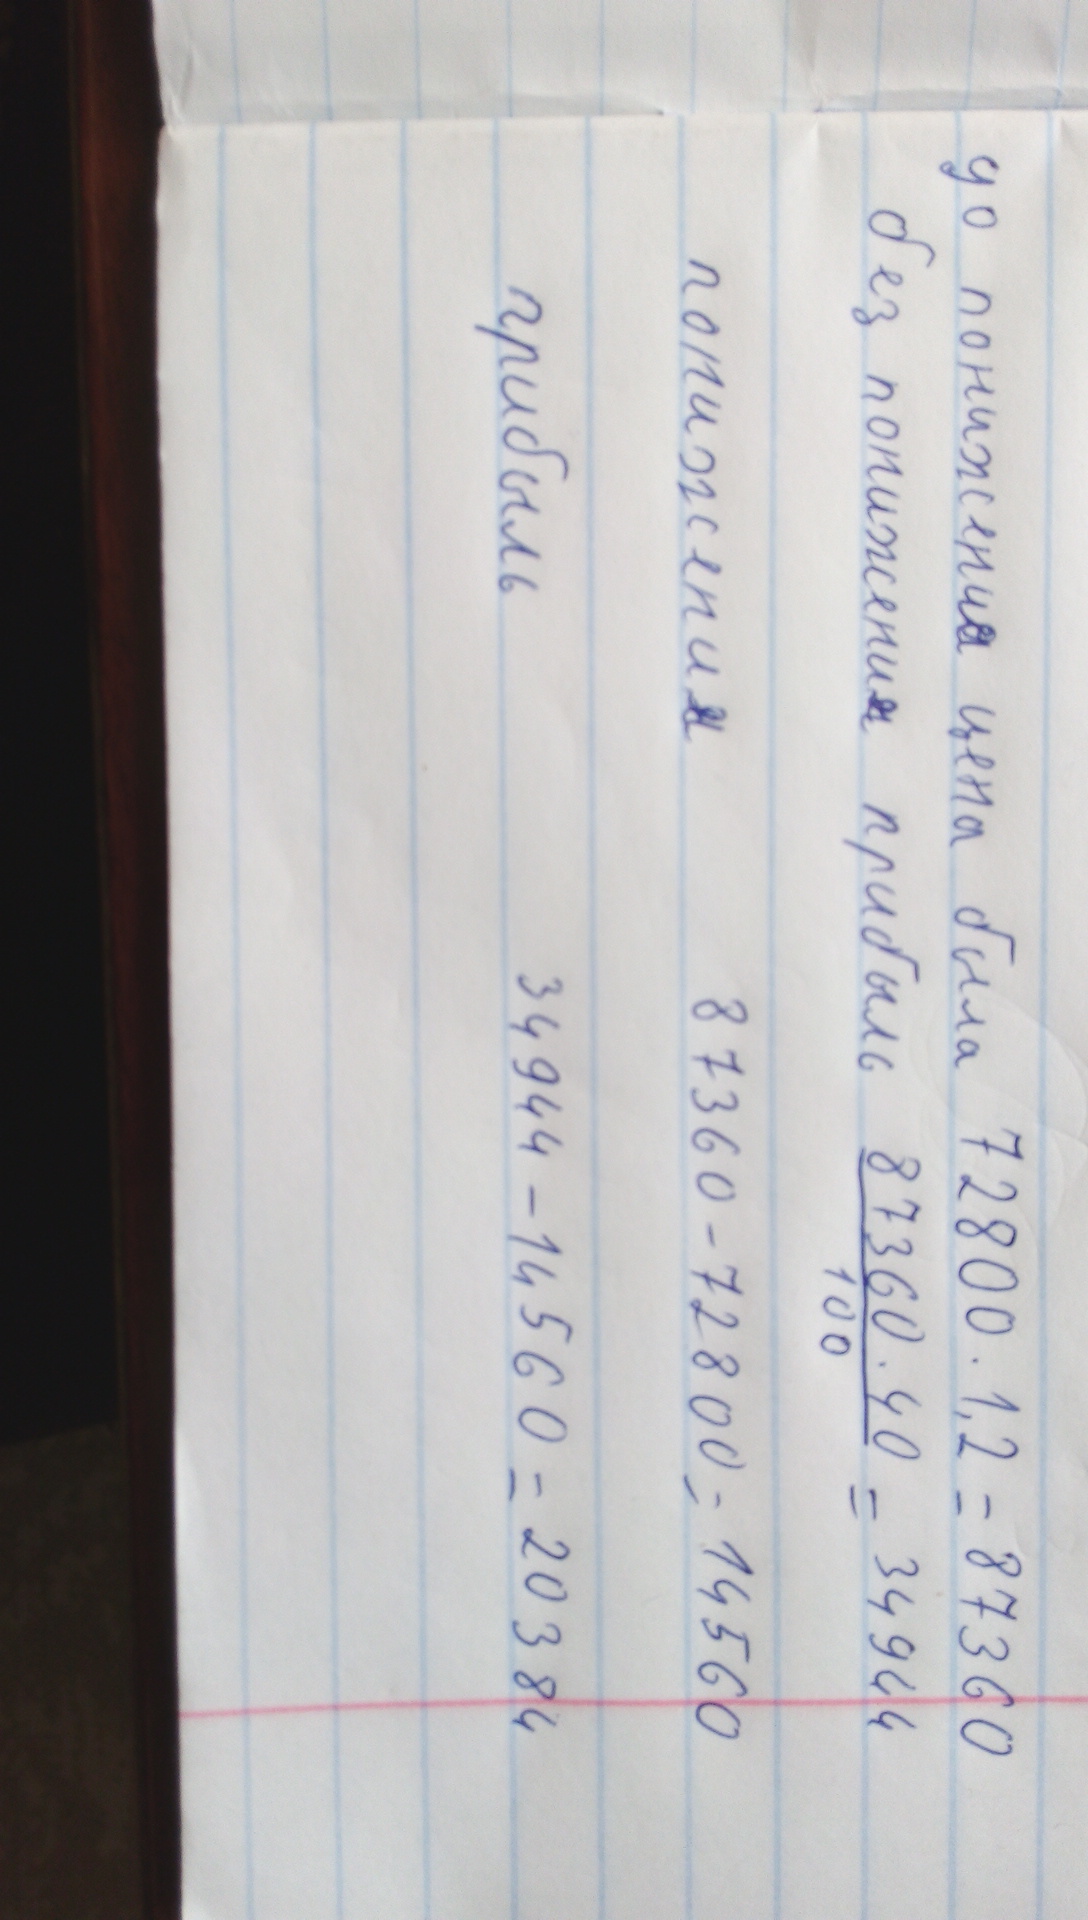 до понижения цена была 72800 · 1,2 = 87360
без понижения прибыль 87360 · 40 = 34944
100
понижения 87360 - 72800 = 14560
прибыль 34944 - 14560 = 20384